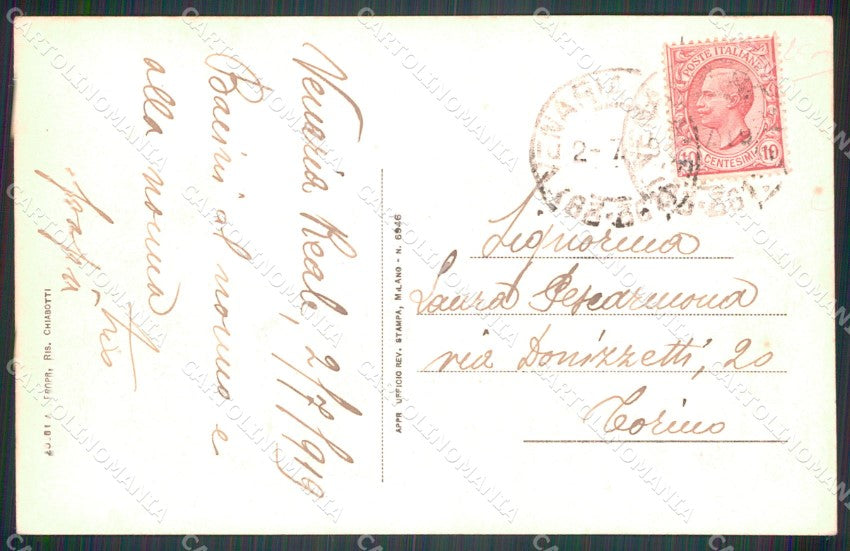 Venaria Reale, 2/7/919
Bacini al nonno e
alla nonna
POSTE ITALIANE
10 CENTESIMI 10
2-7
Signorina
Laura Pescarmona
via Donizzetti, 20
Torino
APPR. UFFICIO REV. STAMPA, MILANO - N. 6946
PROPR. RIS. CHIABOTTI
CARTOLINOMANIA